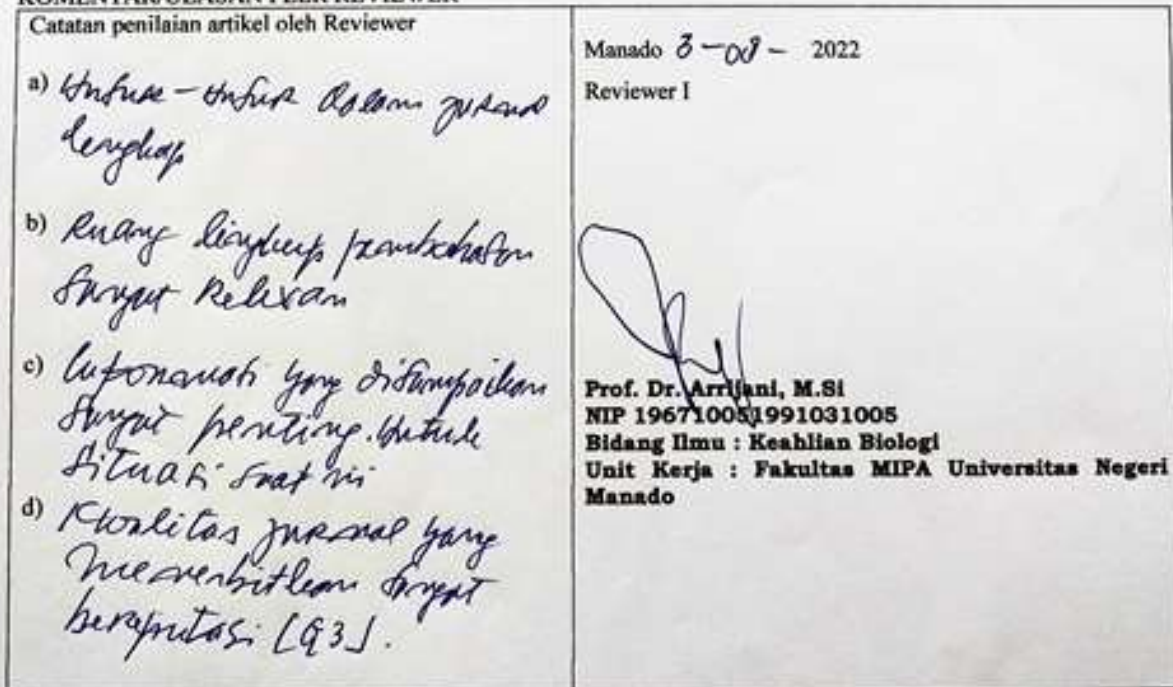 KOMENTAR/ULASAN PEER REVIEWER
Catatan penilaian artikel oleh Reviewer
a) Unsur - unsur dalam jurnal
lengkap
b) Ruang lingkup pembahasan
sangat Relevan
c) Informasi yang disampaikan
sangat penting. Untuk
situasi saat ini
d) Kwalitas jurnal yang
menerbitkan sangat
bereputasi [Q3].
Manado 3 - 08 - 2022
Reviewer I
Prof. Dr. Arrijani, M.Si
NIP 196710051991031005
Bidang Ilmu : Keahlian Biologi
Unit Kerja : Fakultas MIPA Universitas Negeri
Manado